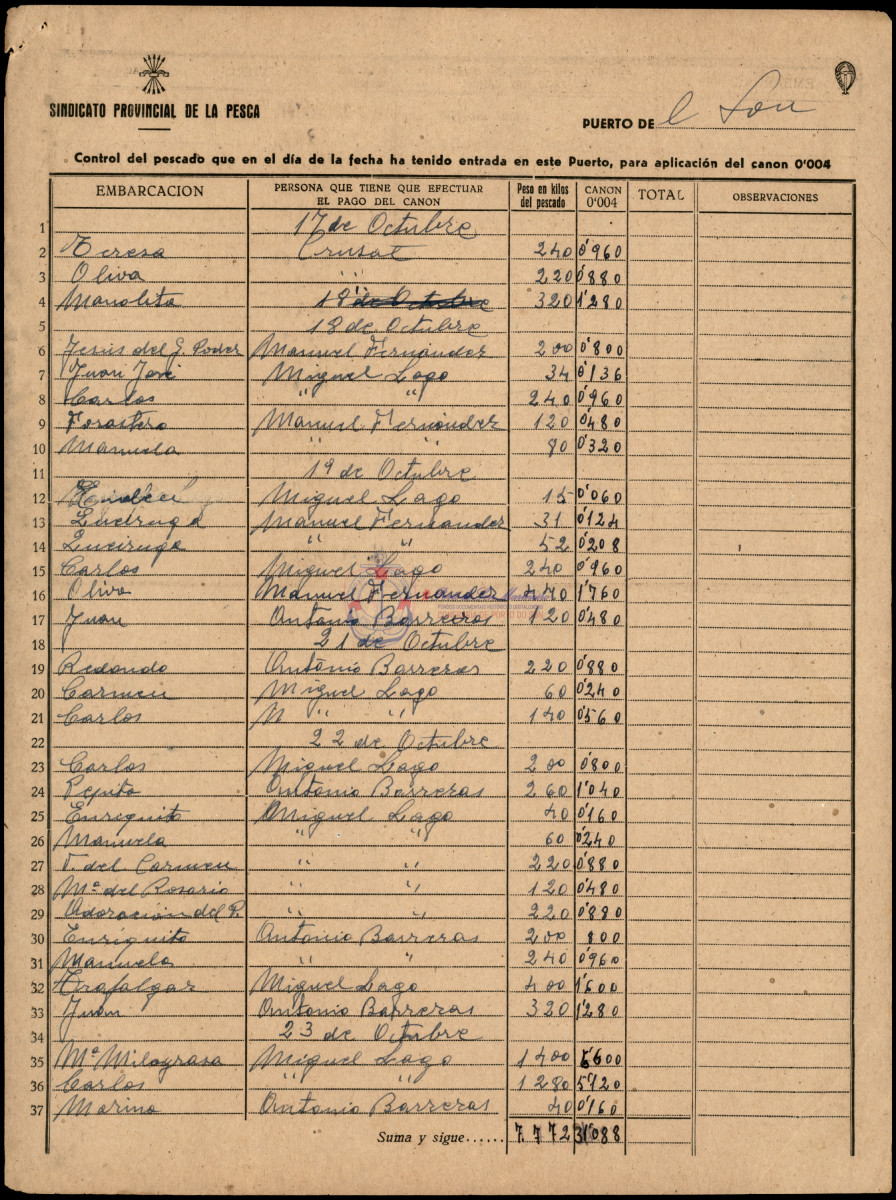 SINDICATO PROVINCIAL DE LA PESCA
PUERTO DE
Control del pescado que en el día de la fecha ha tenido entrada en este Puerto, para aplicación del canon 0'004
EMBARCACION PERSONA QUE TIENE QUE EFECTUAR EL PAGO DEL CANON Peso en kilos del pescado CANON 0'004 TOTAL OBSERVACIONES
1 17 de Octubre
2 Teresa Crusat 240 0'960
3 Oliva " 220 0'880
4 Manolita 18 de Octubre 320 1'280
5 18 de Octubre
6 Jesús del G. Poder Manuel Fernández 200 0'800
7 Juan José Miguel Lago 34 0'136
8 Carlos " " 240 0'960
9 Forastero Manuel Fernández 120 0'480
10 Manuela " " 80 0'320
11 19 de Octubre
12 Miguel Lago 15 0'060
13 Manuel Fernandez 31 0'124
14 " " 52 0'208
15 Carlos Miguel Lago 240 0'960
16 Oliva Manuel Fernandez 440 1'760
17 Juan Antonio Barreiras 120 0'480
18 21 de Octubre
19 Redondo Antonio Barreras 220 0'880
20 Carmen Miguel Lago 60 0'240
21 Carlos M " " 140 0'560
22 22 de Octubre
23 Carlos Miguel Lago 200 0'800
24 Pepita Antonio Barreras 260 1'040
25 Enriquito Miguel Lago 40 0'160
26 Manuela " " 60 0'240
27 V. del Carmen " " 220 0'880
28 Mª del Rosario " " 120 0'480
29 Adoración del P. " " 220 0'880
30 Enriquito Antonio Barreras 200 800
31 Manuela " " 240 0'960
32 Trafalgar Miguel Lago 400 1'600
33 Juan Antonio Barreras 320 1'280
34 23 de Octubre
35 Mª Milagrosa Miguel Lago 1400 5'600
36 Carlos " " 1280 5'120
37 Marina Antonio Barreras 40 0'160
Suma y sigue...... 7.772 31'088